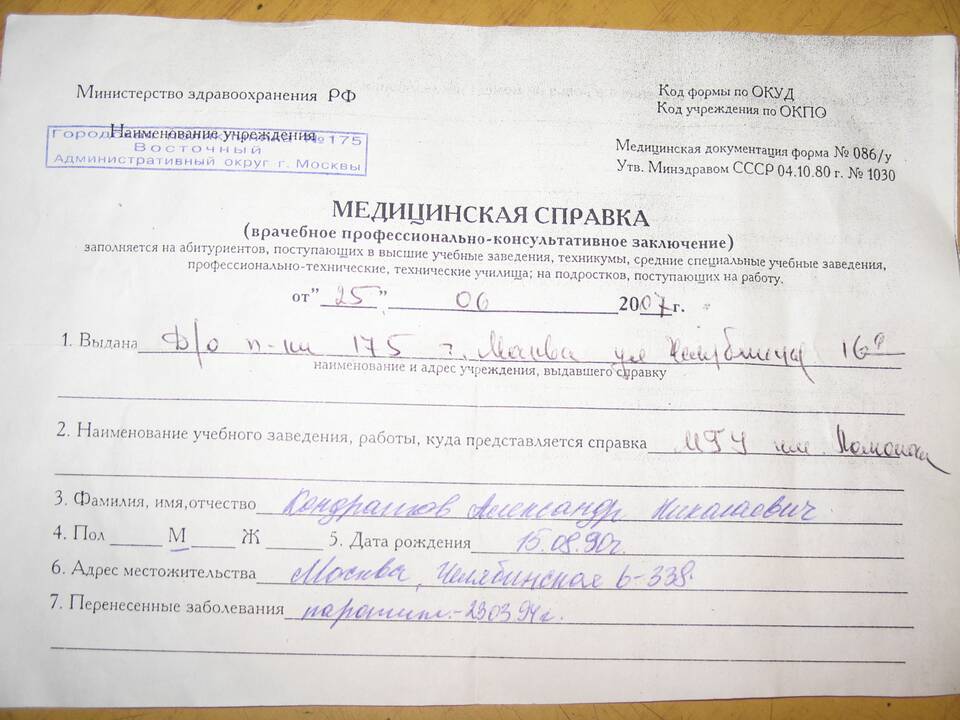 Министерство здравоохранения РФ
Код формы по ОКУД
Код учреждения по ОКПО
Наименование учреждения
Городская поликлиника №175
Восточный
Административный округ г. Москвы
Медицинская документация форма № 086/у
Утв. Минздравом СССР 04.10.80 г. № 1030
МЕДИЦИНСКАЯ СПРАВКА
(врачебное профессионально-консультативное заключение)
заполняется на абитуриентов, поступающих в высшие учебные заведения, техникумы, средние специальные учебные заведения,
профессионально-технические, технические училища; на подростков, поступающих на работу.
от" 25 " 06 2007 г.
1. Выдана Д/о п-ки 175 г. Москва ул Челябинская 16
наименование и адрес учреждения, выдавшего справку
2. Наименование учебного заведения, работы, куда представляется справка МГУ им
3. Фамилия, имя,отчество Кондрашков Александр Николаевич
4. Пол М Ж 5. Дата рождения 15.08.90г.
6. Адрес местожительства Москва, Челябинская 6-338.
7. Перенесенные заболевания паротит-23.03.94г.